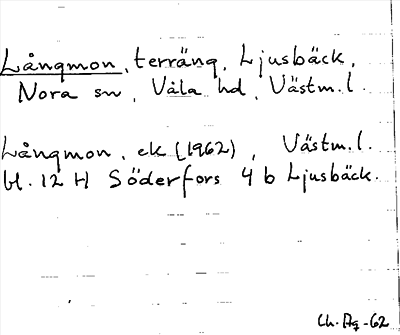 Långmon, terräng, Ljusbäck,
Nora sn, Våla hd, Västm. l.
Långmon, ek (1962), Västm. l.
bl. 12 H Söderfors 4 b Ljusbäck.
Ch. Ag -62